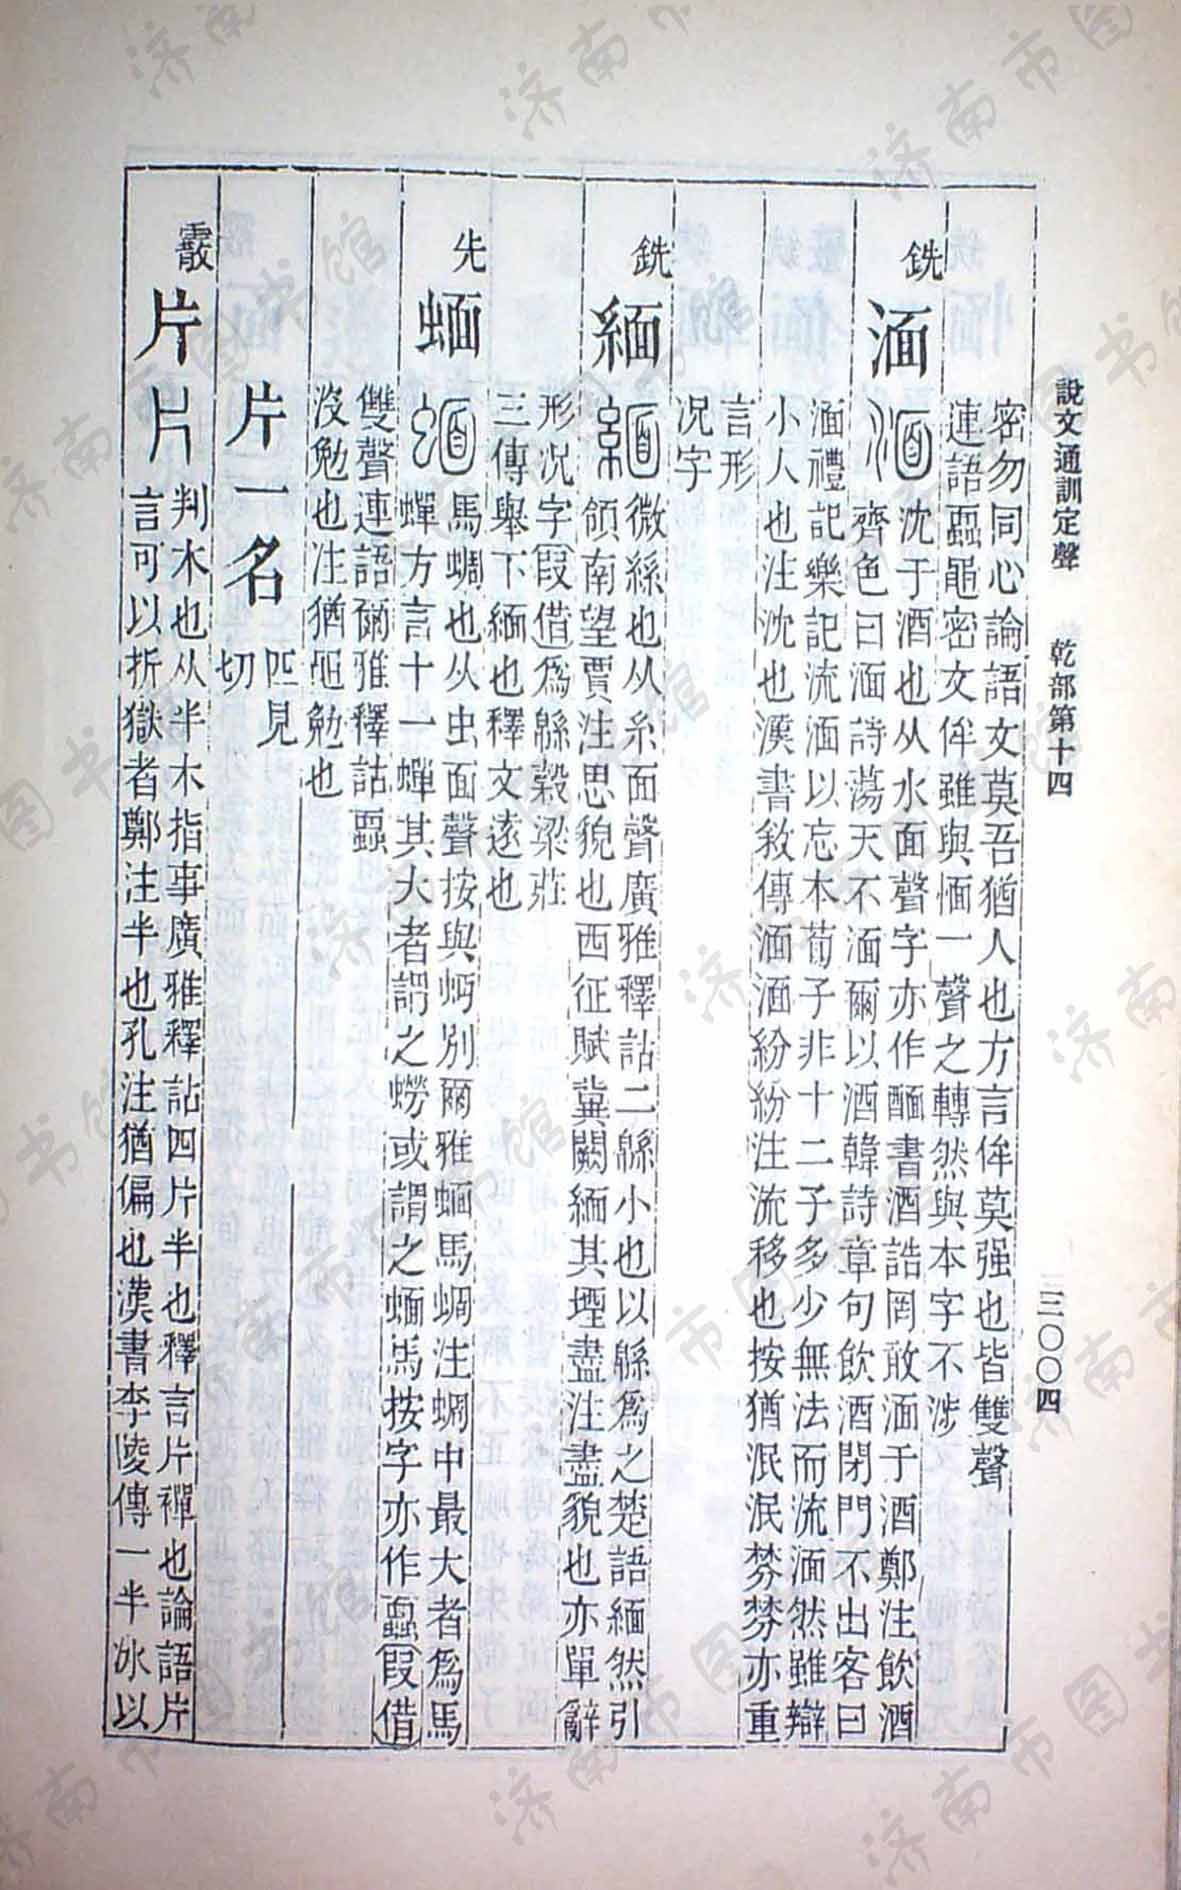 說文通訓定聲 乾部第十四 三〇〇四
密勿同心論語文莫吾猶人也方言侔莫强也皆雙聲
連語蠠黽密文侔雖與愐一聲之轉然與本字不涉
銑
湎
沈于酒也从水面聲字亦作醽書酒誥罔敢湎于酒鄭注飲酒
齊色曰湎詩蕩天不湎爾以酒韓詩章句飲酒閉門不出客曰
湎禮記樂記流湎以忘本荀子非十二子多少無法而流湎然雖辯
小人也注沈也漢書敘傳湎湎紛紛注流移也按猶泯泯棼棼亦重
言形
况字
銑
緬
微絲也从糸面聲廣雅釋詁二緜小也以緜爲之楚語緬然引
領南望賈注思貌也西征賦冀闕緬其堙盡注盡貌也亦單辭
形况字叚借爲緜穀梁莊
三傳舉下緬也釋文遠也
先
蝒
馬蜩也从虫面聲按與蚵別爾雅蝒馬蜩注蜩中最大者爲馬
蟬方言十一蟬其大者謂之蟧或謂之蝒馬按字亦作蠠叚借
雙聲連語爾雅釋詁蠠
沒勉也注猶黽勉也
片一名
匹見
切
霰
片
判木也从半木指事廣雅釋詁四片半也釋言片襌也論語片
言可以折獄者鄭注半也孔注猶偏也漢書李陵傳一半冰以
济南市图书馆